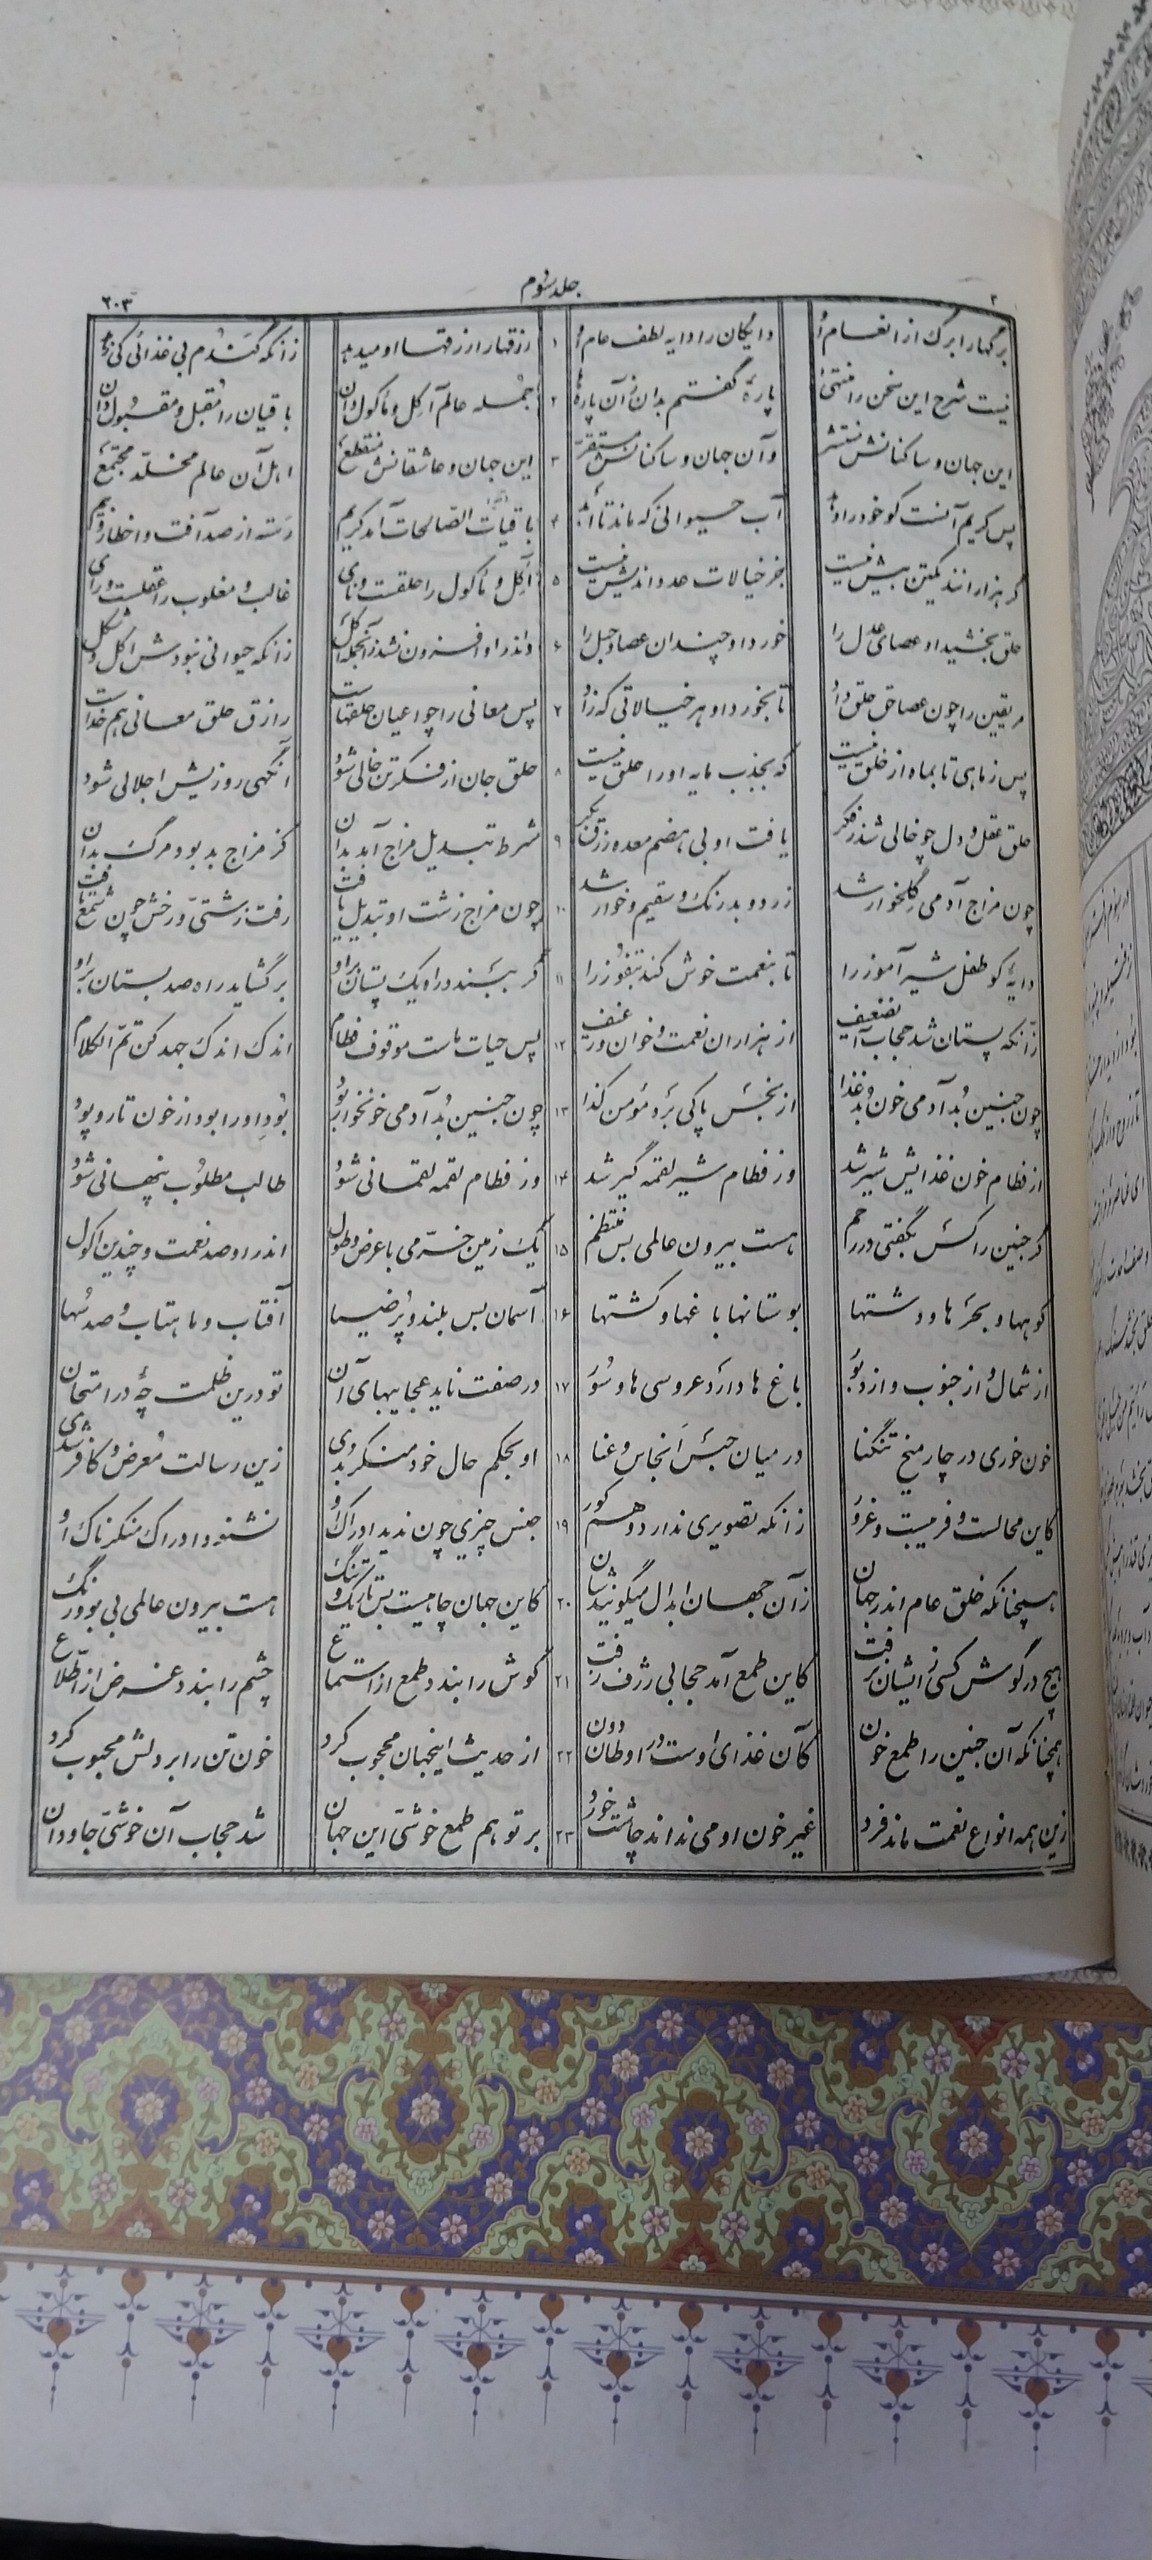 ۲ جلد سوم ۲۰۳
برگها را برگ از انعام او دایگان را دایه لطف عام او ۱ رزقها را رزقها او میدهد زانکه گندم بی غذائی کی زهد
نیست شرح این سخن را منتهی پارهٔ گفتم بدان زان پارها ۲ جمله عالم آکل و مأکول دان باقیان را مقبل و مقبول دان
این جهان و ساکنانش منتشر وآن جهان و ساکنانش مستقر ۳ این جهان و عاشقانش منقطع اهل آن عالم مخلد مجتمع
پس کریم آنست کو خود را دهد آب حیوانی که ماند تا ابد ۴ باقیات الصالحات آمد کریم رسته از صد آفت و اخطار و بیم
گر هزارانند یکتن بیش نیست جز خیالات عدد اندیش نیست ۵ آکل و مأکول را حلقست و نای غالب و مغلوب را عقلست و رای
حلق بخشید او عصای عدل را خورد او چندان عصا و حبل را ۶ واندر او افزون نشد زآنجمله اکل زانکه حیوانی نبودش اکل و شکل
مر یقین را چون عصا حق حلق داد تا بخورد او هر خیالاتی که زاد ۷ پس معانی را چو اعیان حلقهاست رازق حلق معانی هم خداست
پس ز ماهی تا بماه از خلق نیست که بجذب مایه او را حلق نیست ۸ حلق جان از فکر تن خالی شود آنگهی روزیش اجلالی شود
حلق عقل و دل چو خالی شد ز فکر یافت او بی هضم معده رزق بکر ۹ شرط تبدیل مزاج آمد بدان کز مزاج بد بود مرگ بدان
چون مزاج آدمی گلخوار شد زرد و بدرنگ و سقیم و خوار شد ۱۰ چون مزاج زشت او تبدیل یافت رفت زشتی و رخش چون شمع تافت
دایهٔ کو طفل شیرآموز را تا بنعمت خوش کند بتفوز را ۱۱ گر ببندد راه یک پستان بر او برگشاید راه صد بستان بر او
زآنکه پستان شد حجاب آن ضعیف از هزاران نعمت و خوان و رغیف ۱۲ پس حیات ماست موقوف فطام اندک اندک جهد کن تم الکلام
چون جنین بد آدمی خون بد غذا از نجس پاکی برد مؤمن کذا ۱۳ چون جنین بد آدمی خونخوار بود بود او را بود از خون تار و پود
از فطام خون غذایش شیر شد وز فطام شیر لقمه گیر شد ۱۴ وز فطام لقمه لقمانی شود طالب مطلوب پنهانی شود
گر جنین را کس بگفتی در رحم هست بیرون عالمی بس منتظم ۱۵ یک زمین خرمی با عرض و طول اندر او صد نعمت و چندین اکول
کوهها و بحرها و دشتها بوستانها باغها و کشتها ۱۶ آسمان بس بلند و پر ضیا آفتاب و ماهتاب و صد سها
از شمال و از جنوب و از دبور باغها دارد عروسی ها و سور ۱۷ در صفت ناید عجایبهای آن تو درین ظلمت چهٔ در امتحان
خون خوری در چار میخ تنگنا در میان حبس انجاس و عنا ۱۸ او بحکم حال خود منکر بدی زین رسالت معرض و کافر شدی
کاین محالست و فریبست و غرور زانکه تصویری ندارد وهم کور ۱۹ جنس چیزی چون ندید ادراک او نشنود ادراک منکرناک او
همچنانکه خلق عام اندر جهان زآن جهان ابدال میگویندشان ۲۰ کاین جهان چاهیست بس تاریک و تنگ هست بیرون عالمی بی بو و رنگ
هیچ در گوش کسی ز ایشان نرفت کاین طمع آمد حجابی ژرف زفت ۲۱ گوش را بندد طمع از استماع چشم را بندد غرض از اطلاع
همچنانکه آن جنین را طمع خون کآن غذای اوست در اوطان دون ۲۲ از حدیث اینجهان محجوب کرد خون تن را بر دلش محبوب کرد
زین همه انواع نعمت ماند فرد غیر خون او می نداند چاشت خورد ۲۳ بر تو هم طمع خوشی این جهان شد حجاب آن خوشی جاودان